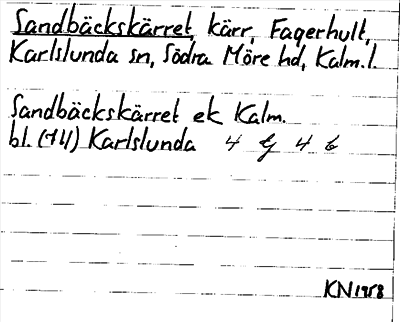 Sandbäckskärret, kärr, Fagerhult,
Karlslunda sn, Södra Möre hd, Kalm.l.
Sandbäckskärret ek Kalm.
bl. (74) Karlslunda 4 G 4 b
KN1958